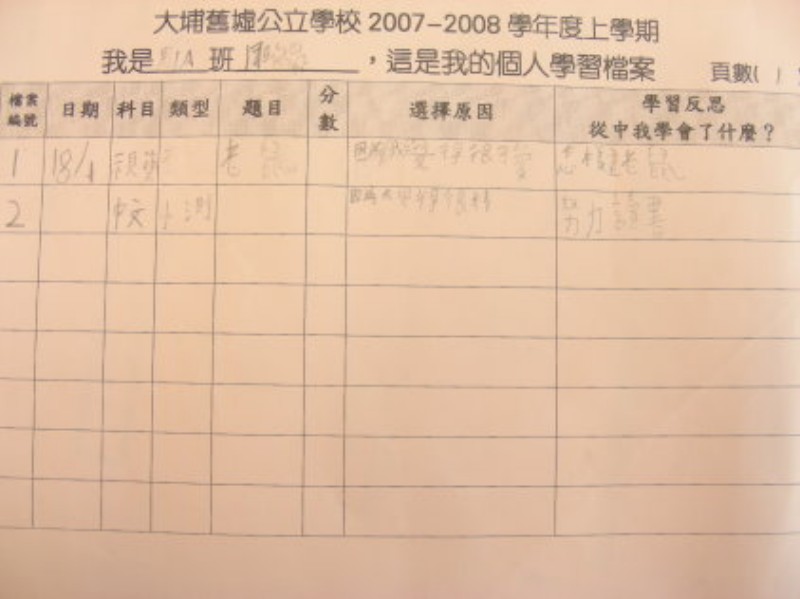 大埔舊墟公立學校 2007-2008 學年度上學期
我是 班 ，這是我的個人學習檔案 頁數( 1
檔案編號 日期 科目 類型 題目 分數 選擇原因 學習反思 從中我學會了什麼？
1 18/1 視藝 老鼠 怎樣畫老鼠
2 中文 小測 努力讀書